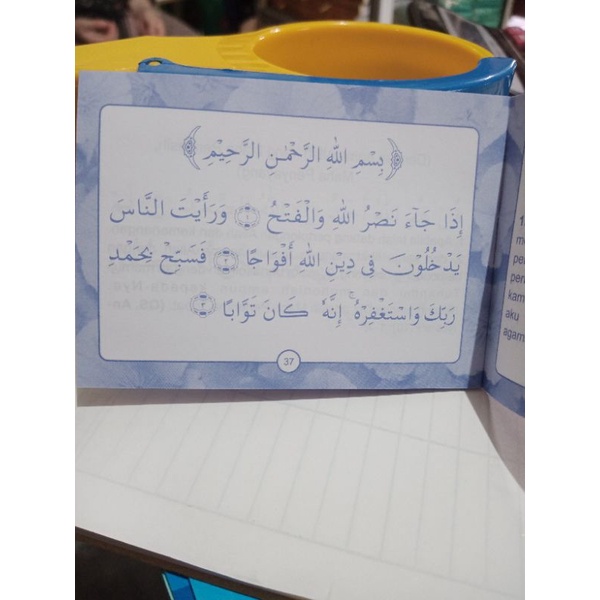 بِسْمِ اللهِ الرَّحْمٰنِ الرَّحِيْمِ
إِذَا جَآءَ نَصْرُ اللهِ وَالْفَتْحُ ۝١ وَرَأَيْتَ النَّاسَ
يَدْخُلُوْنَ فِى دِيْنِ اللهِ أَفْوَاجًا ۝٢ فَسَبِّحْ بِحَمْدِ
رَبِّكَ وَاسْتَغْفِرْهُ ۚ إِنَّهُ كَانَ تَوَّابًا ۝٣
37
1.
me
pe
pen
kam
aku
agam